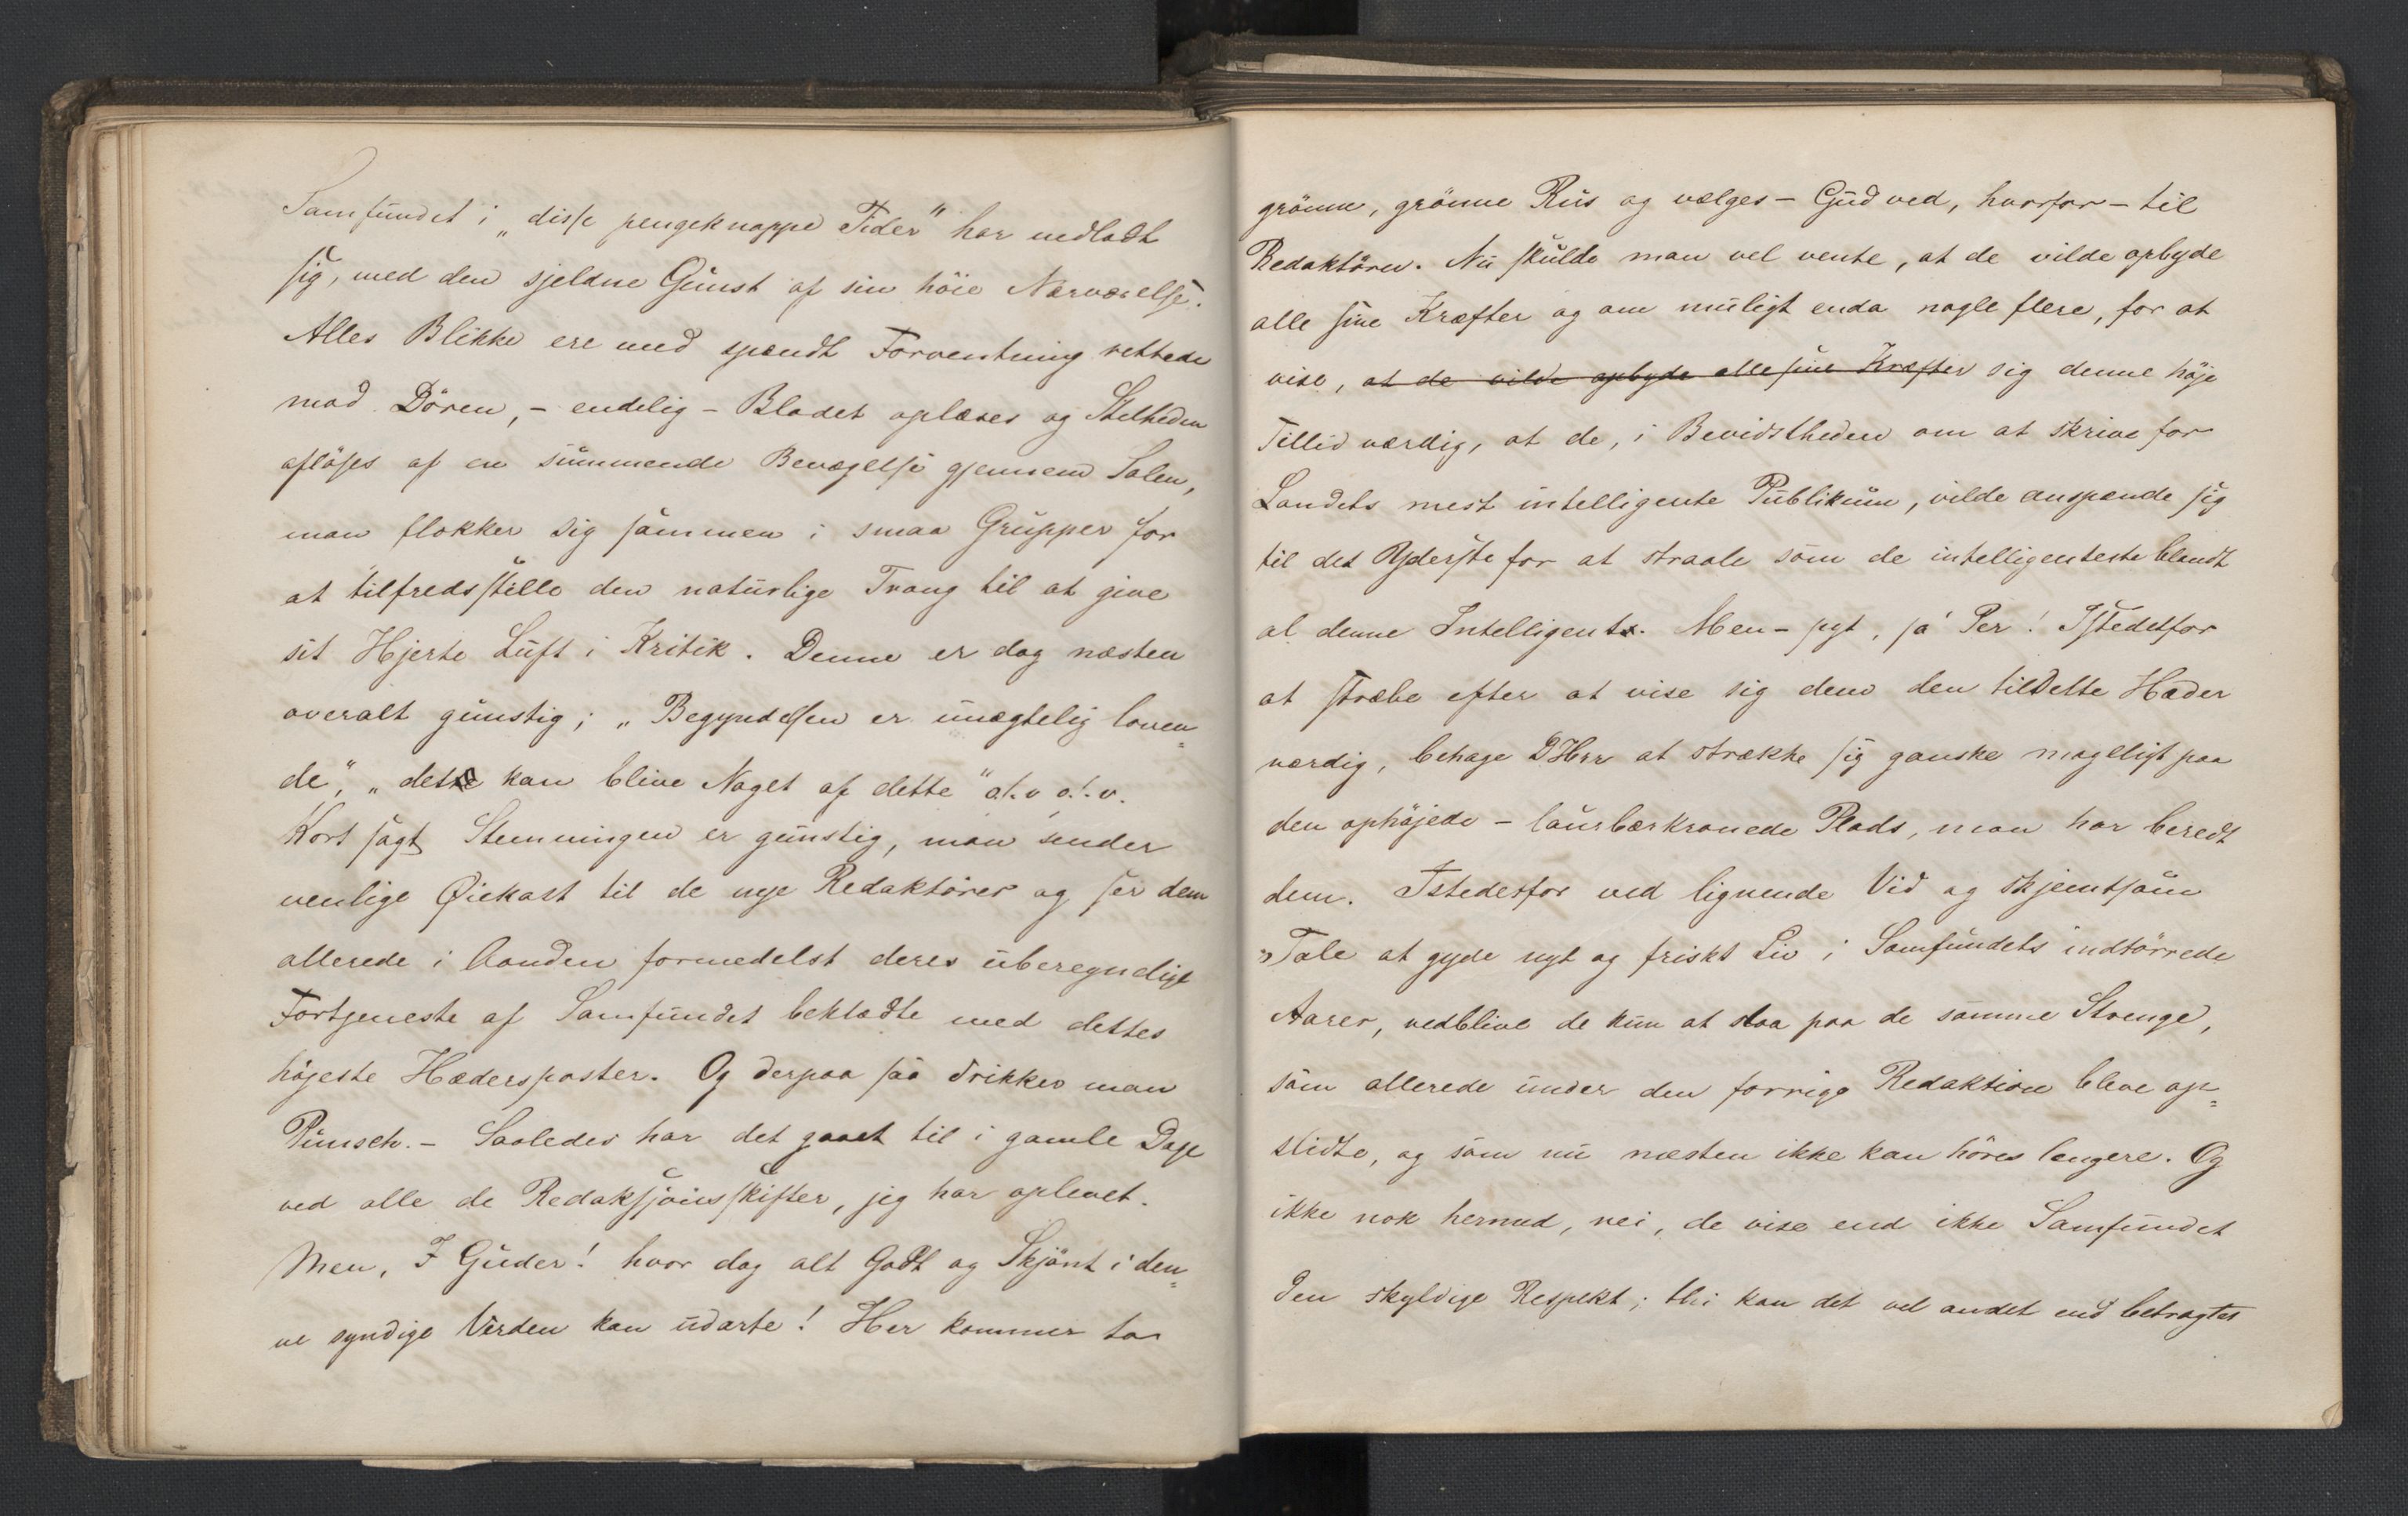 Samfundet i „disse pengeknappe Tider" har nedladt
sig, med den sjeldne Gunst af sin höie Nærværelse.
Alles Blikke ere med spændt Forventning rettede
mod Dören, – endelig – Bladet oplæses og Stilheden
aflöses af en summende Bevægelse gjennem Salen,
man flokker sig sammen i smaa Grupper for
at tilfredsstille den naturlige Trang til at give
sit Hjerte Luft i Kritik. Denne er dog næsten
overalt gunstig; „Begyndelsen er unægtelig loven=
de", „det kan blive Noget af dette" o.s.v o.s.v.
Kort sagt Stemningen er gunstig, man sender
venlige Øiekast til de nye Redaktörer og ser dem
allerede i Aanden formedelst deres uberegnelige
Fortjeneste af Samfundet beklædte med dettes
höjeste Hædersposter. Og derpaa saa drikker man
Punsch. – Saaledes har det gaaet til i gamle Dage
ved alle de Redaksjonsskifter, jeg har oplevet.
Men, I Guder! hvor dog alt Godt og Skjönt i den=
ne syndige Verden kan udarte! Her kommer to
grönne, grönne Rus og vælges – Gud ved, hvorfor – til
Redaktören. Nu skulde man vel vente, at de vilde opbyde
alle sine Kræfter og om muligt enda nogle flere, for at
vise, at de vilde opbyde alle sine Kræfter sig denne höje
Tillid værdig, at de, i Bevidstheden om at skrive for
Landets mest intelligente Publikum, vilde anspænde sig
til det Yderste for at straale som de intelligenteste blandt
al denne Intelligents. Men – pyt, sa' Per! Istedetfor
at stræbe efter at vise sig dem den tildelte Hæder
værdig, behage DHrr at strække sig ganske mageligt paa
den ophöjede – laurbærkronede Plads, man har beredt
dem. Istedetfor ved lignende Vid og skjemtsom
Tale at gyde nyt og friskt Liv i Samfundets indtörrede
Aarer, vedblive de kun at slaa paa de samme Strenge,
som allerede under den forrige Redaktion bleve op=
slidte, og som nu næsten ikke kan höres længere. Og
ikke nok hermed, nei, de vise end ikke Samfundet
den skyldige Respekt; thi kan det vel andet end betragtes